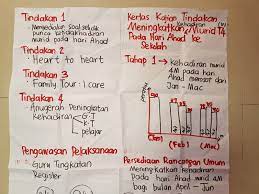 Tindakan 1
• Menyediakan soal selidik
punca ketidakhadiran
murid pada hari Ahad
Tindakan 2
: Heart to heart
Tindakan 3
: Family Tour : I care
Tindakan 4
• Anugerah Peningkatan
Kehadiran
G.T
K.T
Pelajar
Pengawasan Pelaksanaan
Guru Tingkatan
Register
Kertas Kajian Tindakan
Meningkatkan Murid T4
Pada Hari Ahad ke
Sekolah
Tahap 1
Kehadiran murid
4M pada hari
Ahad
Jan - Mac
(Jan)
(Feb)
(Mac)
Persediaan Rancangan Umum
Kehadiran murid pada
hari Ahad murid 4M
bagi bulan April - Jun